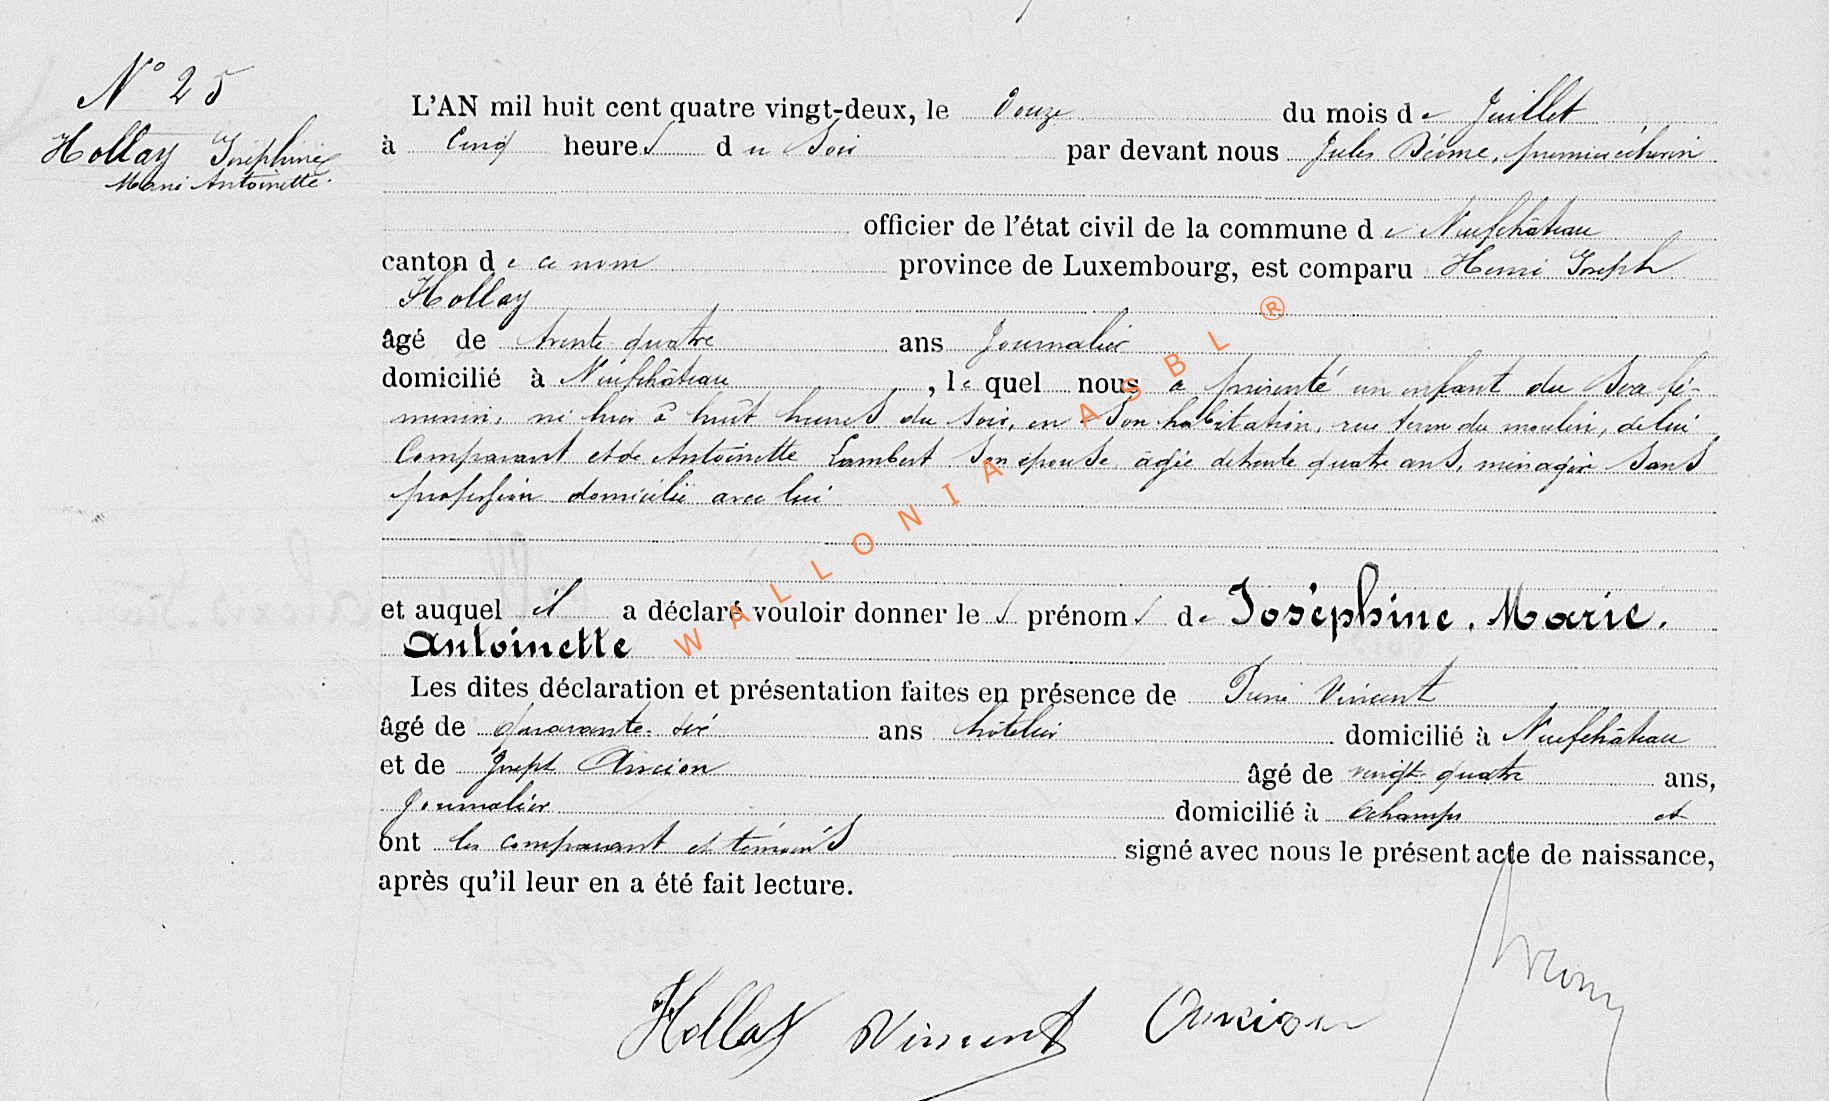 N° 25
Hollay Joséphine
Marie Antoinette.
L'AN mil huit cent quatre vingt-deux, le douze du mois de Juillet
à cinq heures du soir par devant nous Jules premier échevin
officier de l'état civil de la commune de Neufchâteau
canton de ce nom province de Luxembourg, est comparu Henri Joseph
Hollay
âgé de trente quatre ans Journalier
domicilié à Neufchâteau, lequel nous a présenté un enfant du sexe fé-
minin, né hier à huit heures du soir, en son habitation, rue du moulin, de lui
Comparant et de Antoinette Lambert son épouse âgée de trente quatre ans, ménagère sans
profession domicilié avec lui
et auquel il a déclaré vouloir donner les prénoms de Joséphine. Marie.
Antoinette
Les dites déclaration et présentation faites en présence de Vincent
âgé de quarante-six ans hôtelier domicilié à Neufchâteau
et de Joseph Ancion âgé de vingt-quatre ans,
Journalier domicilié à et
ont les comparant et témoins signé avec nous le présent acte de naissance,
après qu'il leur en a été fait lecture.
Hollay Vincent Ancion
WALLONIA ASBL ®